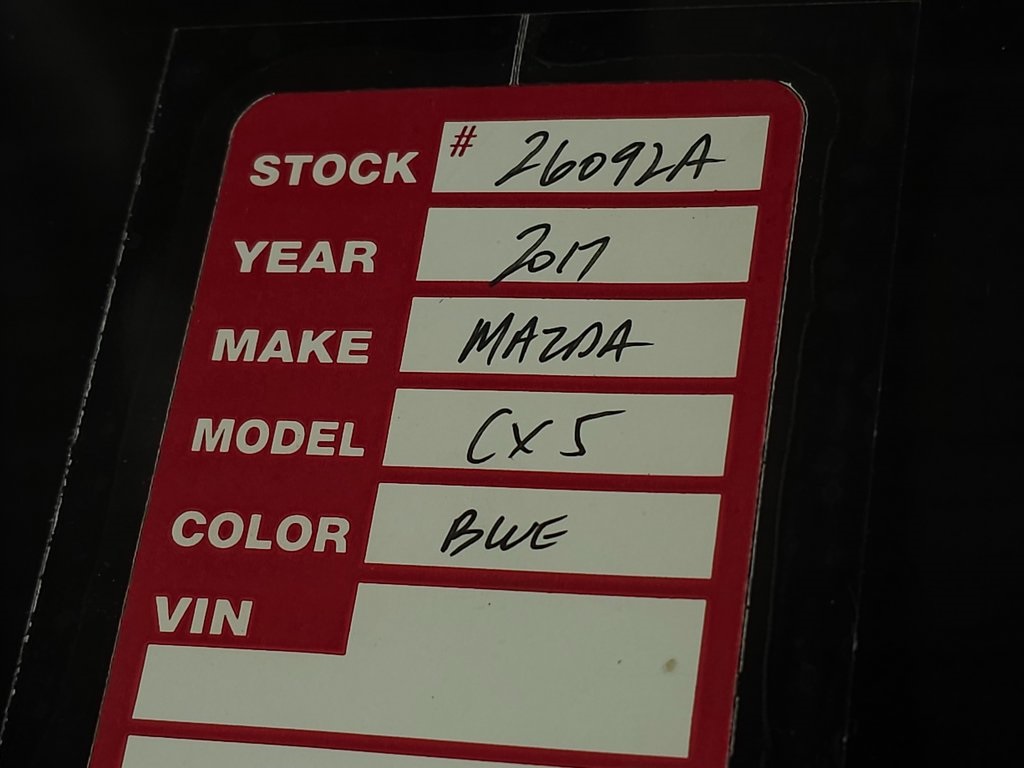 STOCK # 26092A
YEAR 2017
MAKE MAZDA
MODEL CX5
COLOR BLUE
VIN